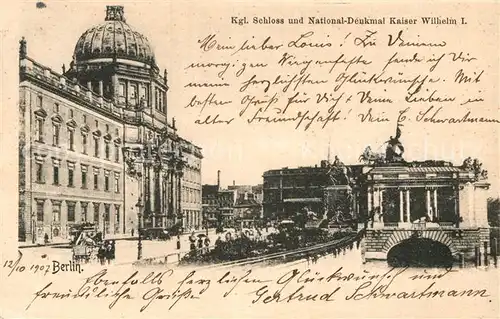 Kgl. Schloss und National-Denkmal Kaiser Wilhelm I.
Mein lieber Louis! Zu Deinem
morgigen Wiegenfeste sende ich Dir
meine herzlichsten Glückwünsche. Mit
besten Gruß für Dich & Deine Lieben in
alter Freundschaft! Dein E. Schwartzmann
12/10 1907 Berlin.
Ebenfalls herzlichen Glückwunsch &
freundliche Grüße Gertrud Schwartzmann